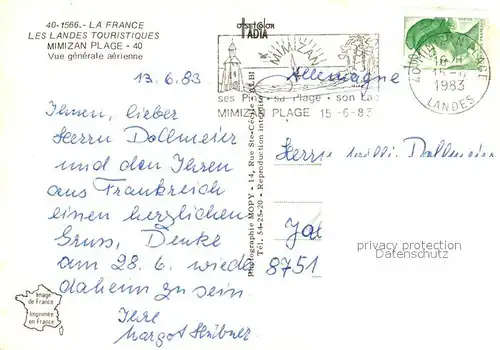 40-1566.- LA FRANCE
LES LANDES TOURISTIQUES
MIMIZAN PLAGE - 40
Vue générale aérienne
13.6.83
Ihnen, lieber
Herrn Dollmeier
und den Ihren
aus Frankreich
einen herzlichen
Gruss, Denke
am 28.6. wieder
daheim zu sein.
Ihre
Margot Hübner
Image
de France
Imprimée
en France
Photographie MOPY - 14, Rue Ste-Cécile
Tél. 54-25-20 - Reproduction interdite
MIMIZAN
ses Pins - sa Plage - son Lac
MIMIZAN PLAGE 15-6-83
PLAGE
15-6
1983
LANDES
Allemagne
Herrn Willi Dallmeier
8751
privacy protection
Datenschutz